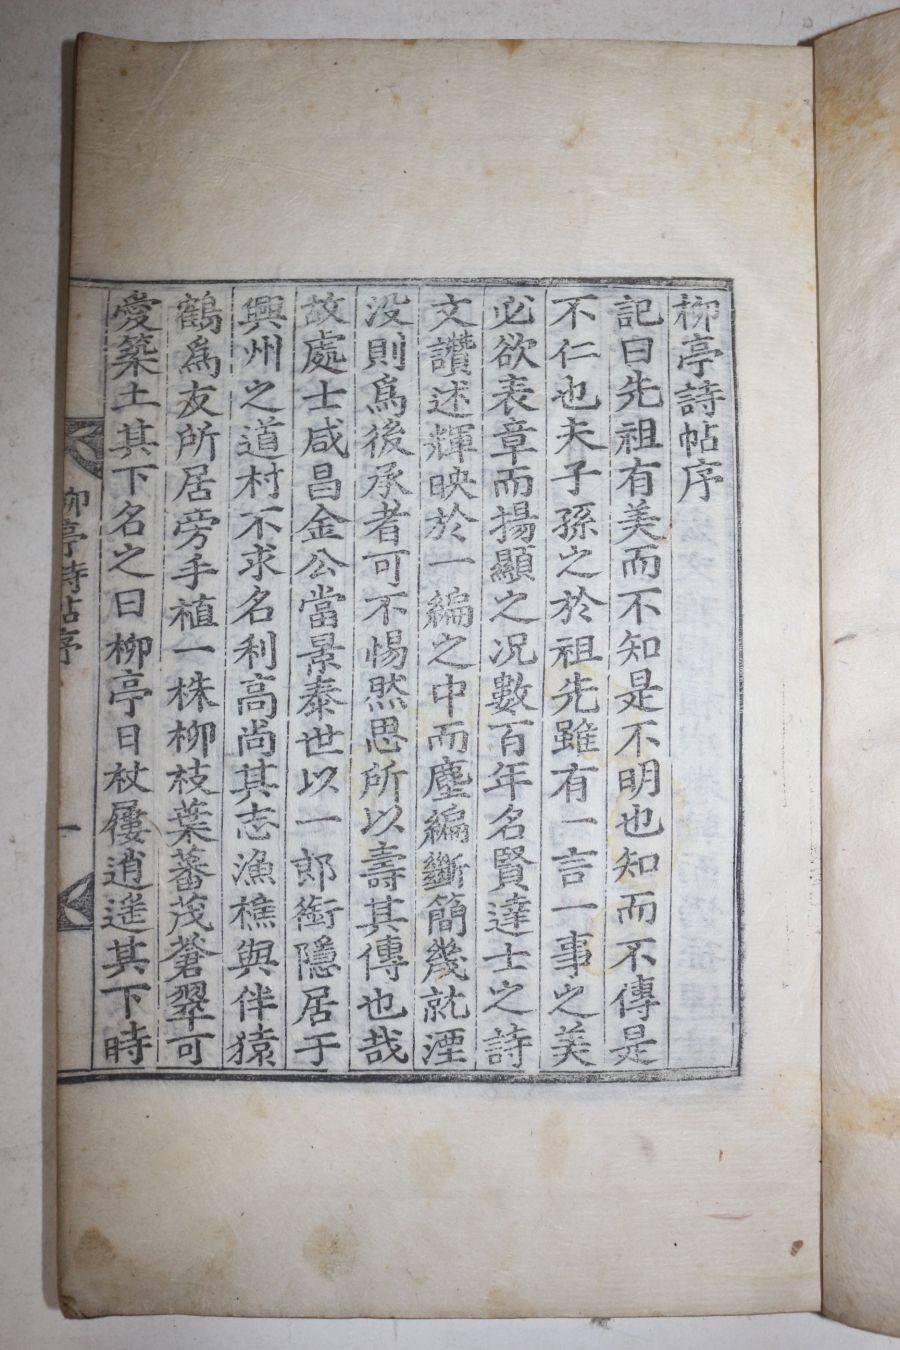 柳亭詩帖序
記曰先祖有美而不知是不明也知而不傳是
不仁也夫子孫之於祖先雖有一言一事之美
必欲表章而揚顯之况數百年名賢達士之詩
文讚述輝映於一編之中而塵編斷簡幾就湮
没則爲後承者可不惕然思所以壽其傳也哉
故處士咸昌金公當景泰世以一郎銜隱居于
興州之道村不求名利高尚其志漁樵與伴猿
鶴爲友所居旁手植一株柳枝葉蕃茂蒼翠可
愛築土其下名之曰柳亭日杖屨逍遙其下時
柳亭詩帖序
一